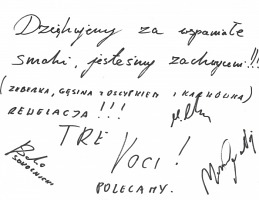 Dziękujemy za wspaniałe
smaki, jesteśmy zachwyceni!!!
(ŻEBERKA, GĘSINA Z OSCYPKIEM I KARKÓWKA)
REWELACJA !!!
TRE
VOCI!
POLECAMY.